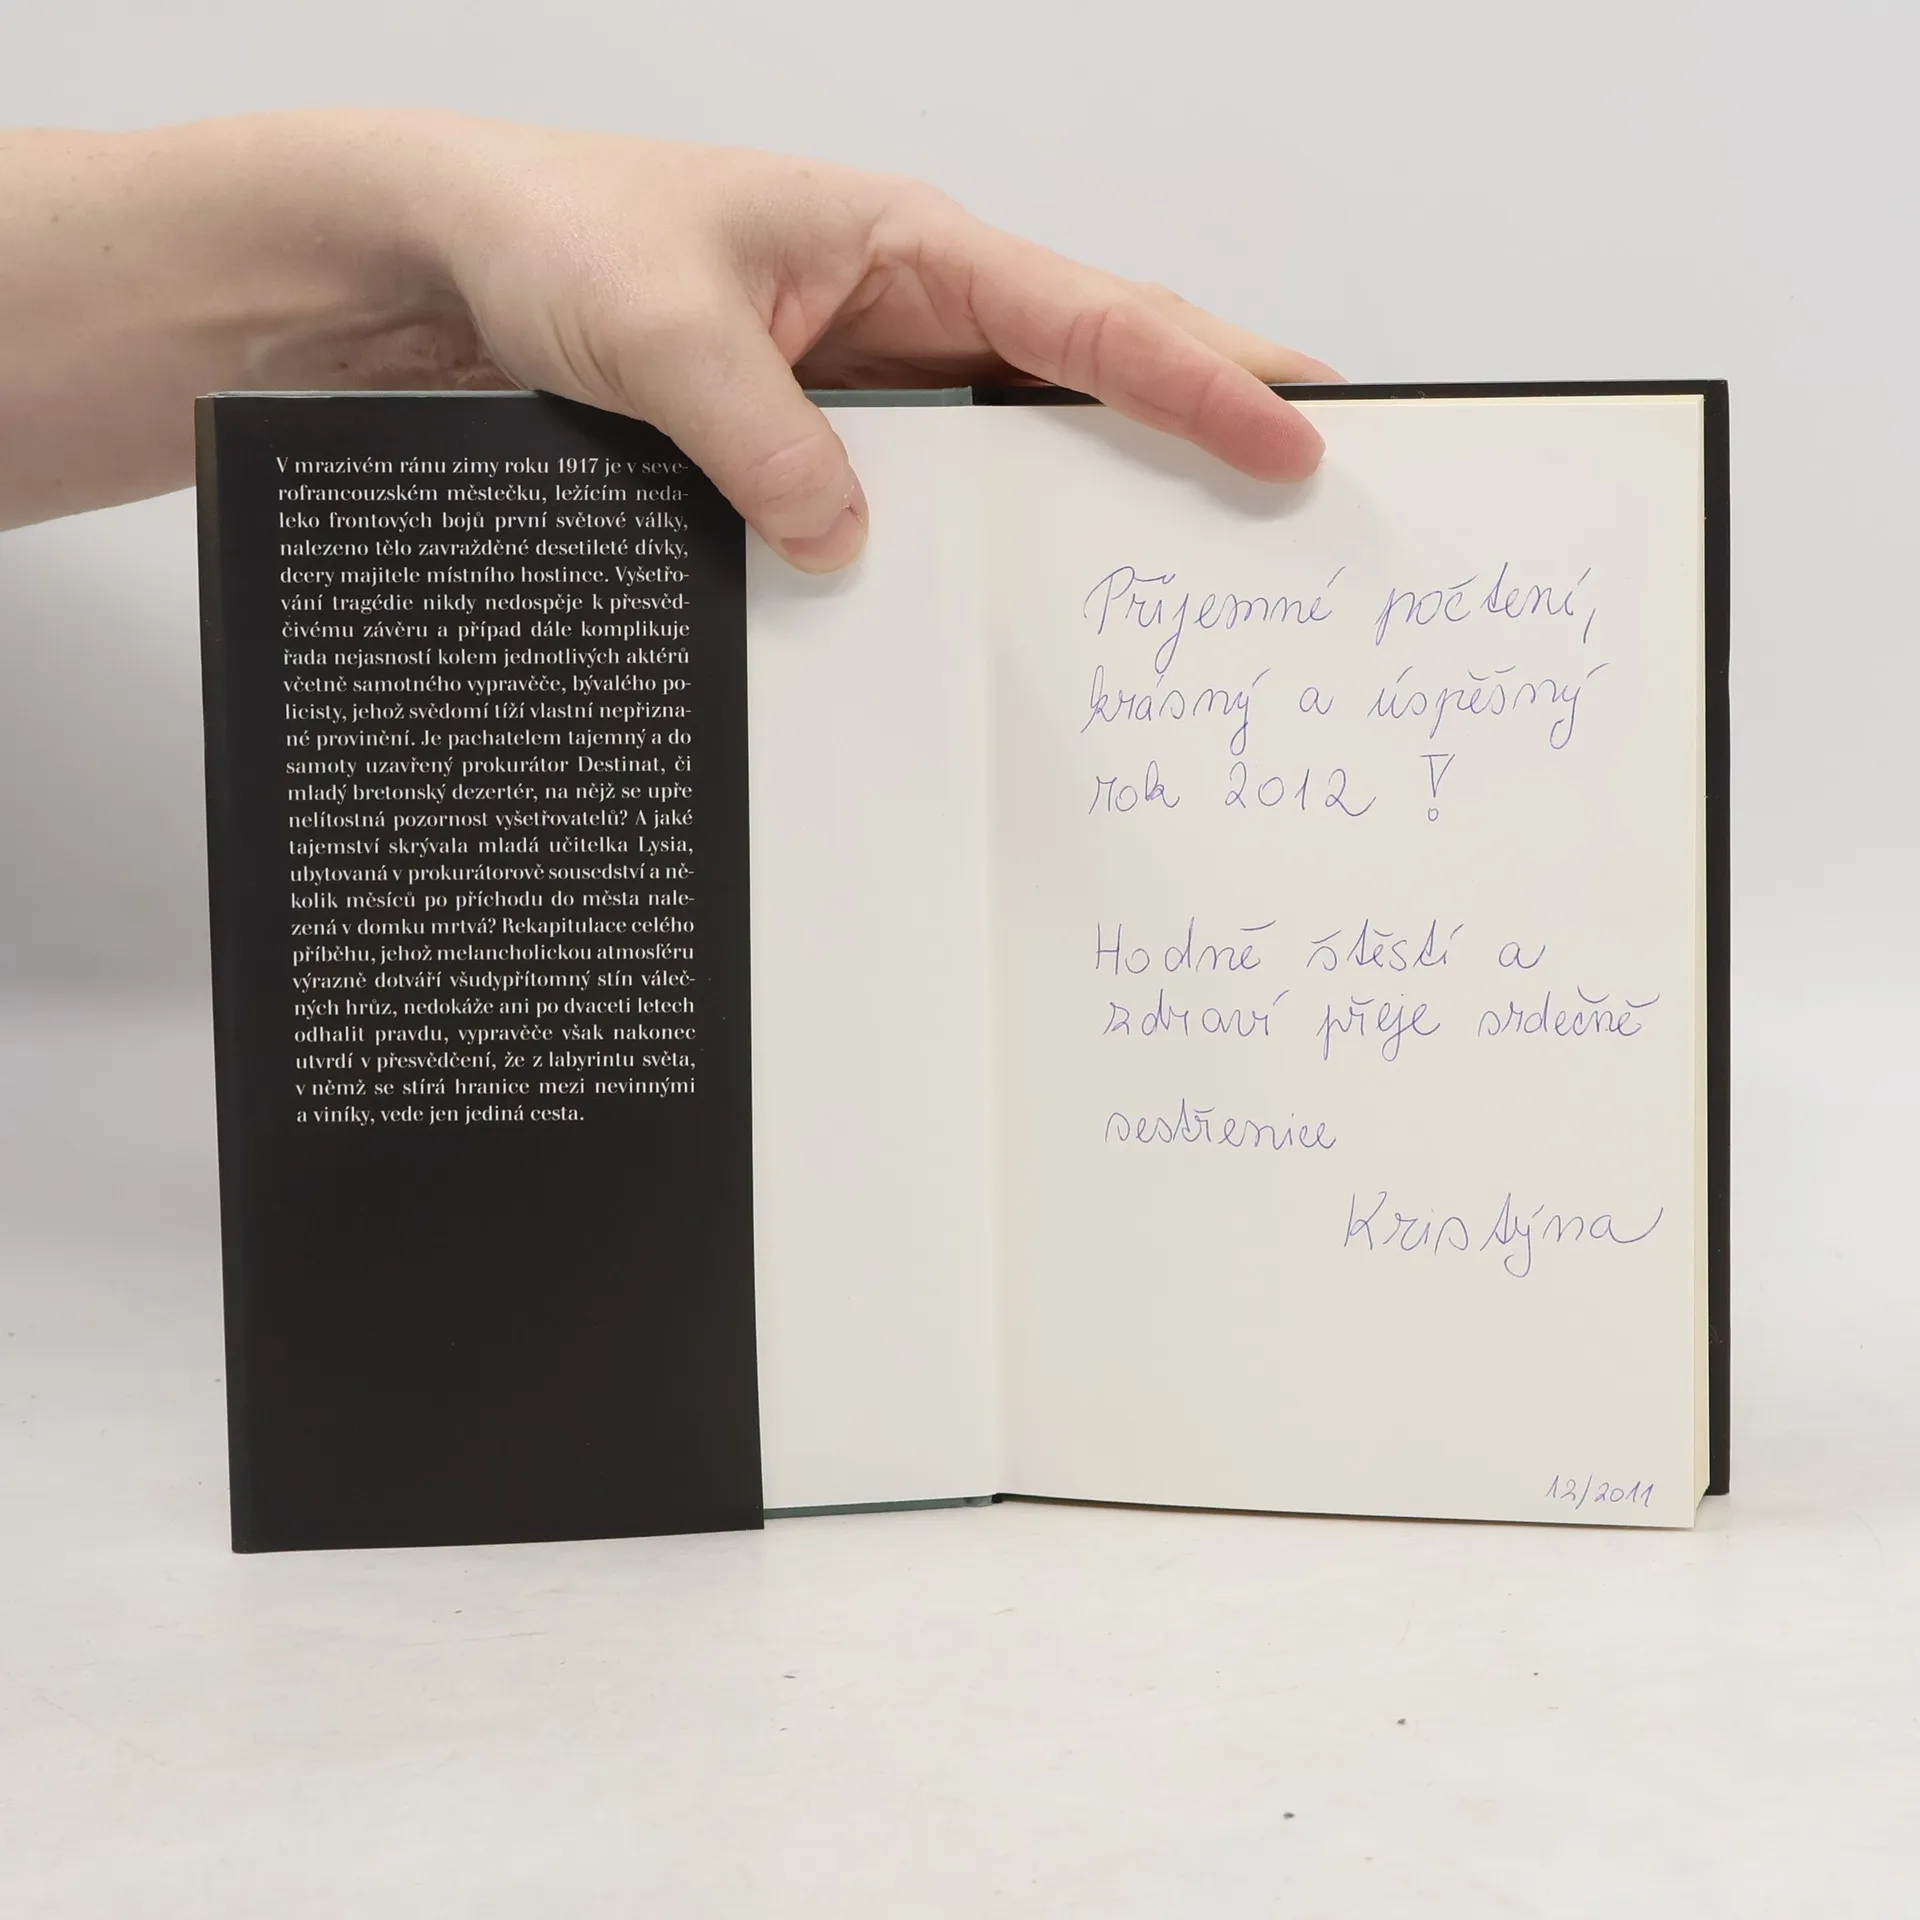 V mrazivém ránu zimy roku 1917 je v seve-
rofrancouzském městečku, ležícím neda-
leko frontových bojů první světové války,
nalezeno tělo zavražděné desetileté dívky,
dcery majitele místního hostince. Vyšetřo-
vání tragédie nikdy nedospěje k přesvěd-
čivému závěru a případ dále komplikuje
řada nejasností kolem jednotlivých aktérů
včetně samotného vypravěče, bývalého po-
licisty, jehož svědomí tíží vlastní nepřizna-
né provinění. Je pachatelem tajemný a do
samoty uzavřený prokurátor Destinat, či
mladý bretonský dezertér, na nějž se upře
nelítostná pozornost vyšetřovatelů? A jaké
tajemství skrývala mladá učitelka Lysia,
ubytovaná v prokurátorově sousedství a ně-
kolik měsíců po příchodu do města nale-
zená v domku mrtvá? Rekapitulace celého
příběhu, jehož melancholickou atmosféru
výrazně dotváří všudypřítomný stín váleč-
ných hrůz, nedokáže ani po dvaceti letech
odhalit pravdu, vypravěče však nakonec
utvrdí v přesvědčení, že z labyrintu světa,
v němž se stírá hranice mezi nevinnými
a viníky, vede jen jediná cesta.
Příjemné počtení,
krásný a úspěšný
rok 2012 !
Hodně štěstí a
zdraví přeje srdečně
sestřenice
Kristýna
12/2011